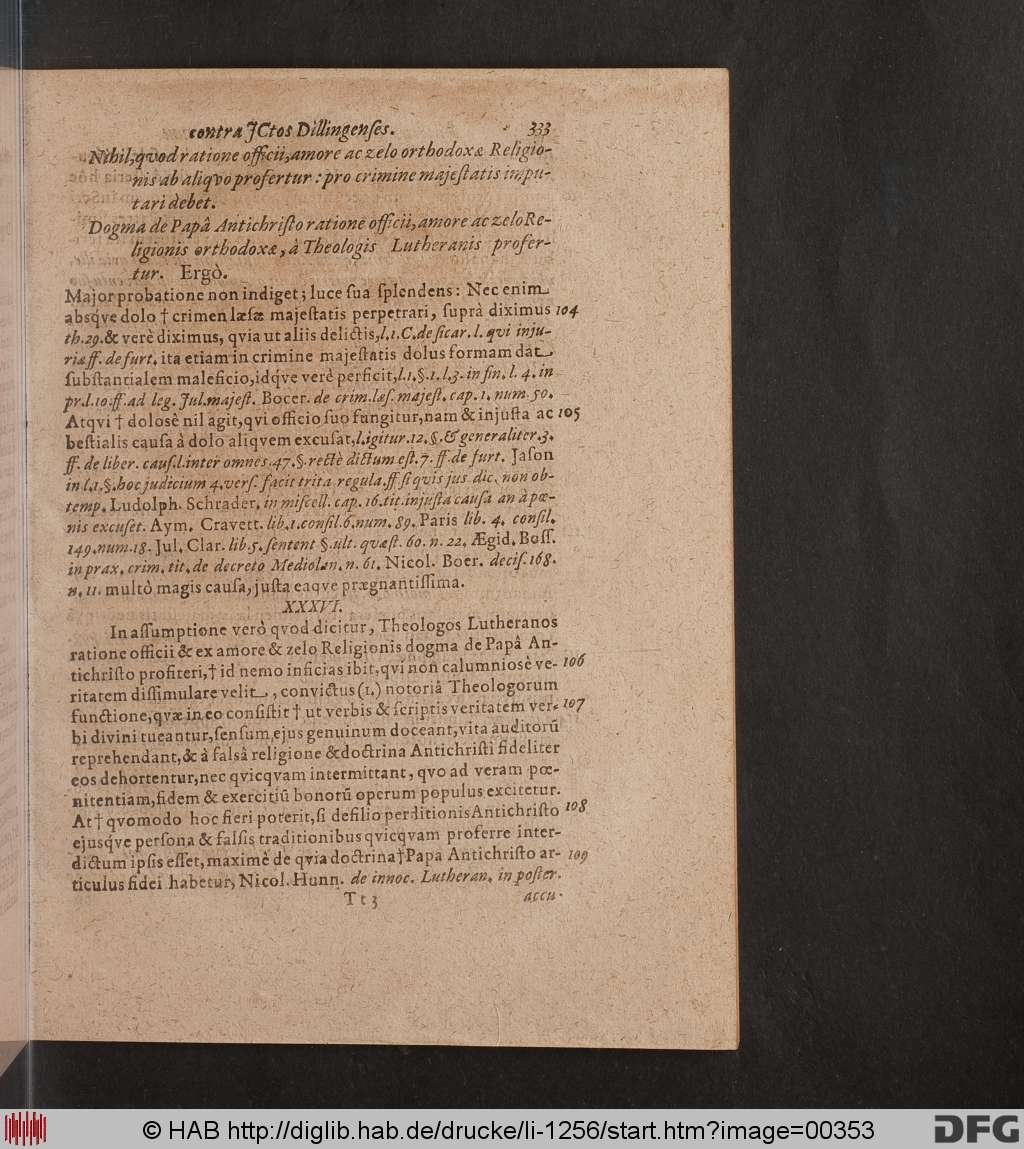 contra JCtos Dillingenses. 333
Nihil, qvod ratione officii, amore ac zelo orthodoxæ Religio-
nis ab aliqvo profertur : pro crimine majestatis impu-
tari debet.
Dogma de Papâ Antichristo ratione officii, amore ac zelo Re-
ligionis orthodoxæ, à Theologis Lutheranis profer-
tur. Ergò.
Major probatione non indiget; luce sua splendens: Nec enim
absqve dolo † crimen læsæ majestatis perpetrari, suprà diximus 104
th. 29. & verè diximus, qvia ut aliis delictis, l. 1. C. de sicar. l. qvi inju-
riæ ff. de furt. ita etiam in crimine majestatis dolus formam dat
substantialem maleficio, idqve verè perficit, l. 1. §. 1. l. 3. in fin. l. 4. in
pr. l. 10. ff. ad leg. Jul. majest. Bocer. de crim. læs. majest. cap. 1. num. 50.
Atqvi † dolosè nil agit, qvi officio suo fungitur, nam & injusta ac 105
bestialis causa à dolo aliqvem excusat, l. igitur. 12. §. & generaliter. 3.
ff. de liber. caus. l. inter omnes. 47. §. rectè dictum est. 7. ff. de furt. Jason
in l. 1. §. hoc judicium 4. vers. facit trita regula. ff. si quis jus dic. non ob-
temp. Ludolph. Schrader. in miscell. cap. 16. tit. injusta causa an à pœ-
nis excuset. Aym. Cravett. lib. 1. consil. 6. num. 89. Paris lib. 4. consil.
149. num. 18. Jul. Clar. lib. 5. sentent §. ult. quæst. 60. n. 22. Ægid. Boss.
in prax. crim. tit. de decreto Mediolan. n. 61. Nicol. Boer. decis. 168.
n. 11. multò magis causa, justa eaqve prægnantissima.
XXXVI.
In assumptione verò qvod dicitur, Theologos Lutheranos
ratione officii & ex amore & zelo Religionis dogma de Papâ An-
tichristo profiteri, † id nemo inficias ibit, qvi non calumniosè ve- 106
ritatem dissimulare velit, convictus (1.) notoriâ Theologorum
functione, qvæ in eo consistit † ut verbis & scriptis veritatem ver- 107
bi divini tueantur, sensum ejus genuinum doceant, vita auditorũ
reprehendant, & à falsâ religione & doctrina Antichristi fideliter
eos dehortentur, nec qvicqvam intermittant, qvo ad veram pœ-
nitentiam, fidem & exercitiũ bonorũ operum populus excitetur.
At † qvomodo hoc fieri poterit, si de filio perditionis Antichristo 108
ejusqve persona & falsis traditionibus qvicqvam proferre inter-
dictum ipsis esset, maximè de qvia doctrina † Papa Antichristo ar- 109
ticulus fidei habetur, Nicol. Hunn. de innoc. Lutheran. in poster.
T t 3 accu-
© HAB http://diglib.hab.de/drucke/li-1256/start.htm?image=00353
DFG